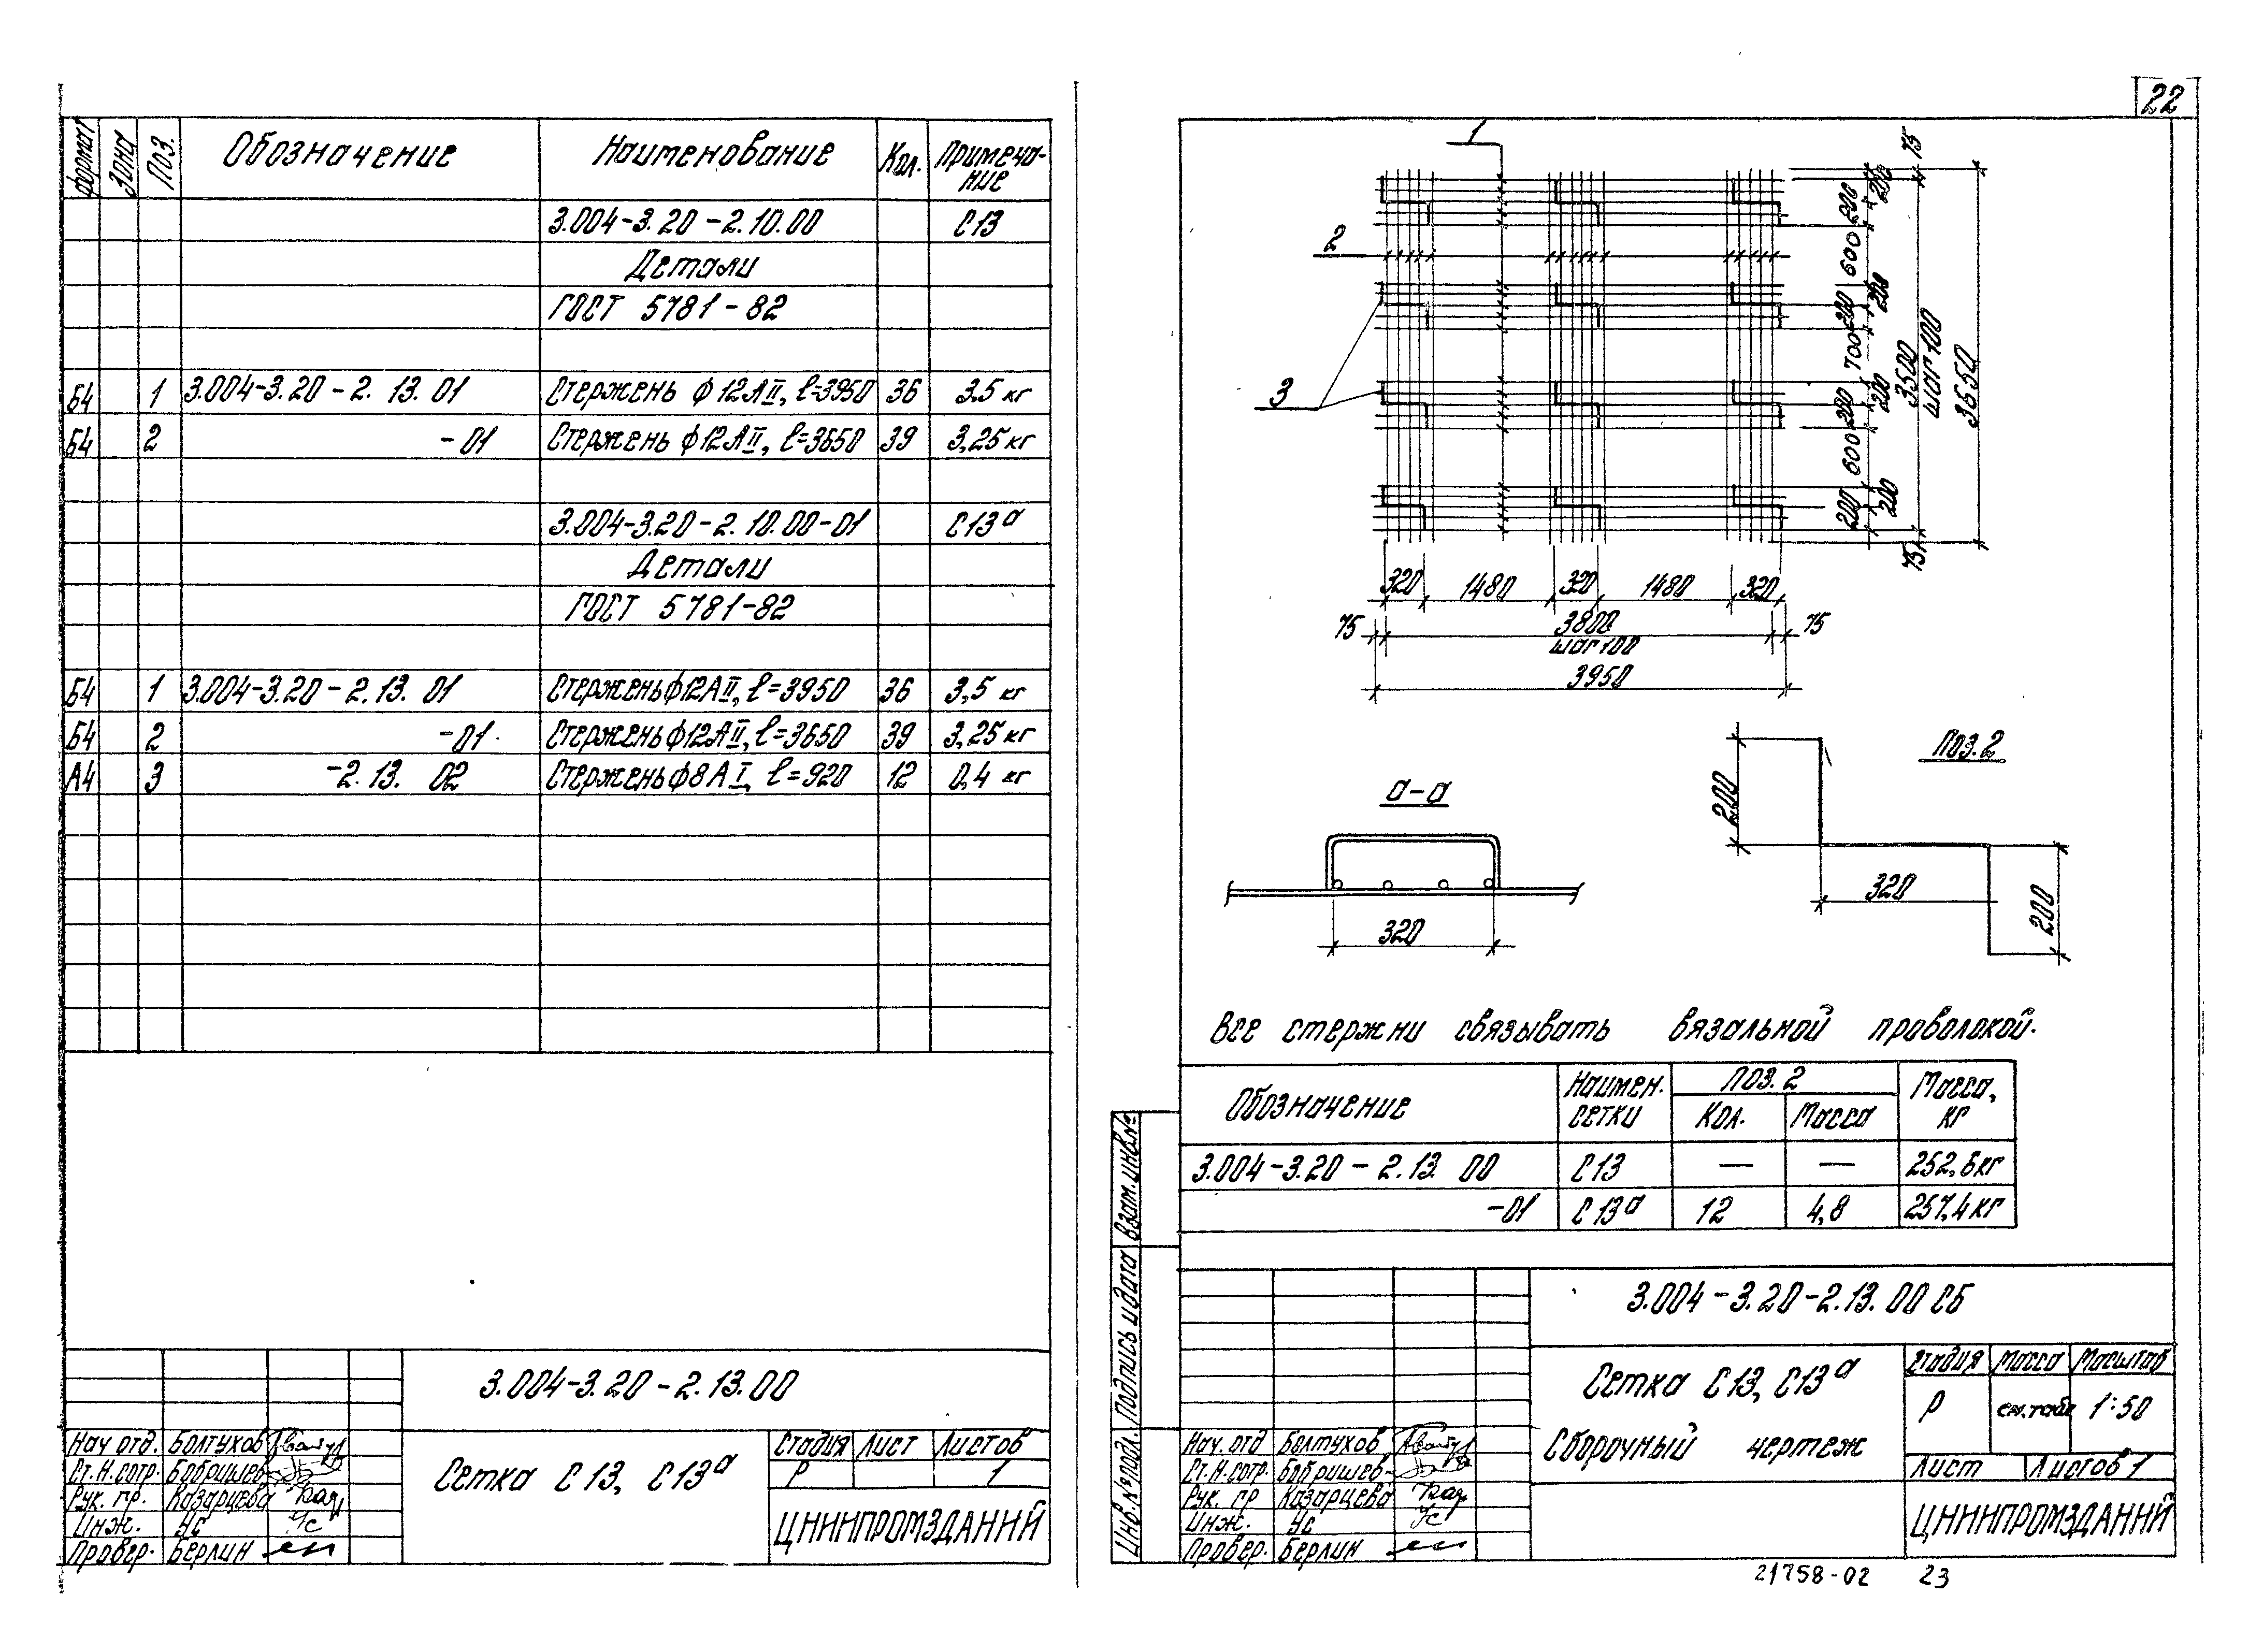 22
формат Зона Поз. Обозначение Наименование Кол. Примеча-
ние
3.004-3.20-2.10.00 С13
Детали
ГОСТ 5781-82
Б4 1 3.004-3.20-2.13.01 Стержень ф12АII, ℓ=3950 36 3,5 кг
Б4 2 -01 Стержень ф12АII, ℓ=3650 39 3,25 кг
3.004-3.20-2.10.00-01 С13ᵃ
Детали
ГОСТ 5781-82
Б4 1 3.004-3.20-2.13.01 Стержень ф12АII, ℓ=3950 36 3,5 кг
Б4 2 -01 Стержень ф12АII, ℓ=3650 39 3,25 кг
А4 3 -2.13.02 Стержень ф8АI, ℓ=920 12 0,4 кг
3.004-3.20-2.13.00
Нач. отд. Болтухов
Ст.н.сотр. Бобришев
Рук. гр. Казарцева
Инж. Ус
Провер. Берлин
Сетка С13, С13ᵃ
Стадия Лист Листов
Р 1
ЦНИИПРОМЗДАНИЙ
1
2
3
75
200 200
600
200 200
700
200 200
600
200 200
75
3500
шаг 100
3650
320 1480 320 1480 320
75 3800 75
шаг 100
3950
а-а
320
Поз. 2
200
320
200
Все стержни связывать вязальной проволокой.
Обозначение Наимен. сетки Поз. 2 Масса, кг
Кол. Масса
3.004-3.20-2.13.00 С13 — — 252,6кг
-01 С13ᵃ 12 4,8 257,4кг
Взам. инв.№
Подпись и дата
Инв.№ подл.
3.004-3.20-2.13.00 СБ
Нач. отд Болтухов
Ст.н.сотр. Бобришев-
Рук. гр Казарцева
Инж. Ус
Провер. Берлин
Сетка С13, С13ᵃ
Сборочный чертеж
Стадия Масса Масштаб
Р см.табл 1:50
Лист Листов 1
ЦНИИПРОМЗДАНИЙ
21758-02 23